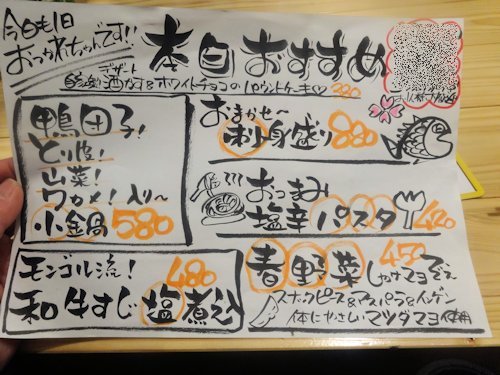 今日も1日
おつかれちゃんです!!
本日おすすめ
デザート
自家製酒かす&ホワイトチョコのパウンドケーキ♡ 380
鴨団子!
とり皮!
山菜!
ワカメ!入り〜
小鍋 580
おまかせ〜
刺身盛り 880
おつまみ
塩辛パスタ 420
モンゴル流!
和牛すじ塩煮込 480
春野菜 450
しょうゆマヨぞえ
スナックピース&アスパラ&インゲン
体にやさしいマツダマヨ使用